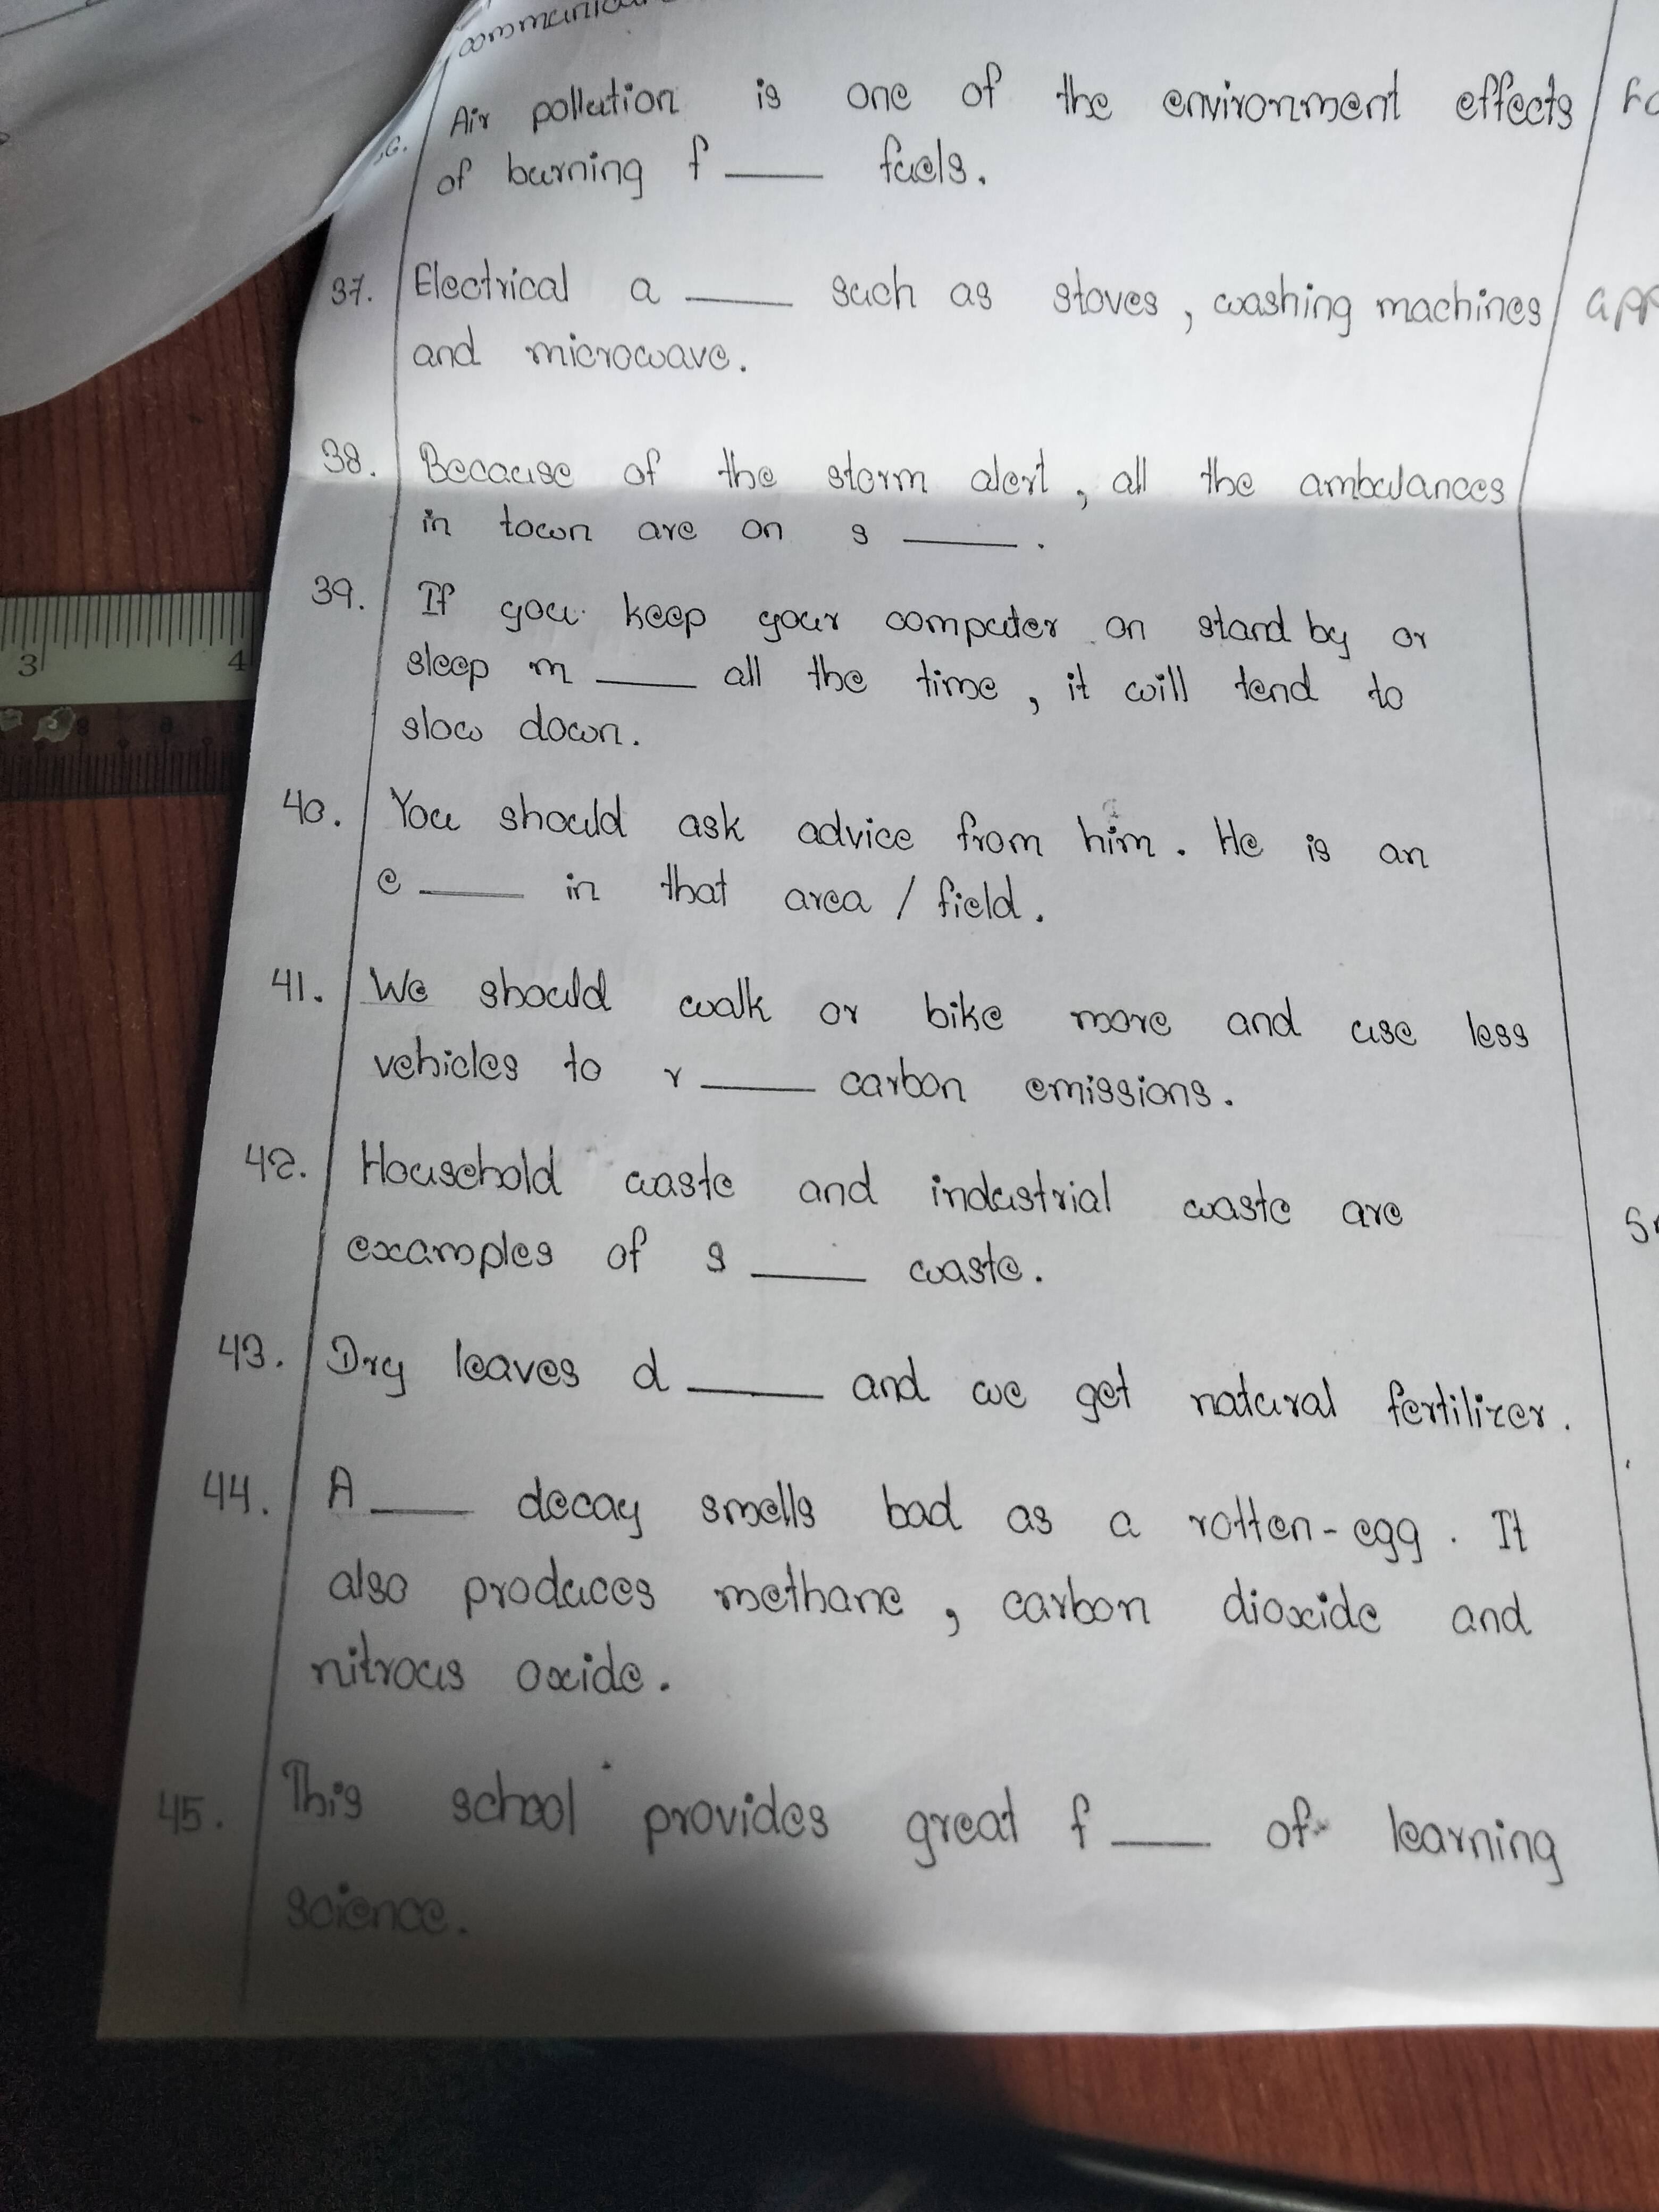 36. Air pollution is one of the environment effects
of burning f ____ fuels.
37. Electrical a ____ such as stoves, washing machines
and microwave.
38. Because of the storm alert, all the ambulances
in town are on s ____.
39. If you keep your computer on stand by or
sleep m ____ all the time, it will tend to
slow down.
40. You should ask advice from him. He is an
e ____ in that area / field.
41. We should walk or bike more and use less
vehicles to r ____ carbon emissions.
42. Household waste and industrial waste are
examples of s ____ waste.
43. Dry leaves d ____ and we get natural fertilizer.
44. A ____ decay smells bad as a rotten-egg. It
also produces methane, carbon dioxide and
nitrous oxide.
45. This school provides great f ____ of learning
science.
3 4